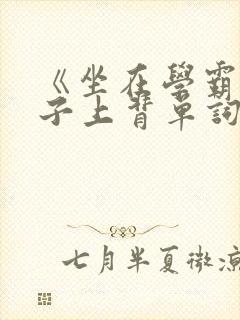 《坐在學霸
子上背單詞
七月半夏微涼